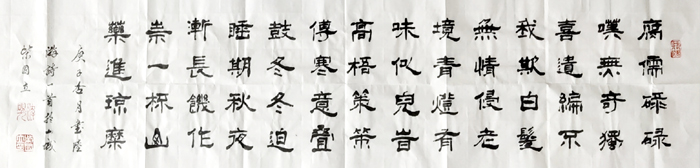 腐儒碌碌
嘆無奇獨
喜遺編不
我欺白髮
無情侵老
境青燈有
味似兒旹
高梧策策
傳寒意疊
鼓冬冬迫
睡期秋夜
漸長饑作
祟一杯山
藥進瓊糜
庚子杏月書陸
游詩一首於